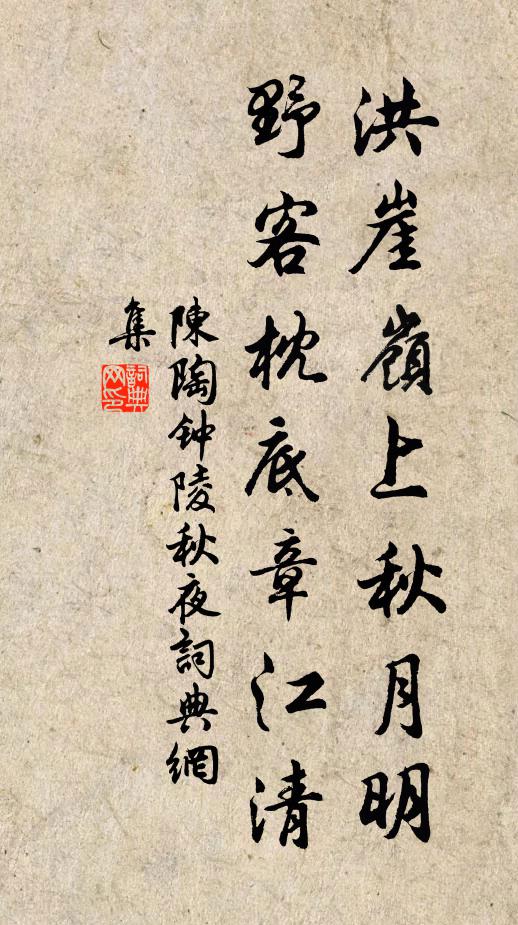 洪崖嶺上秋月明
野客枕底章江清
陳陶钟陵秋夜詞典網
集
詞典網印